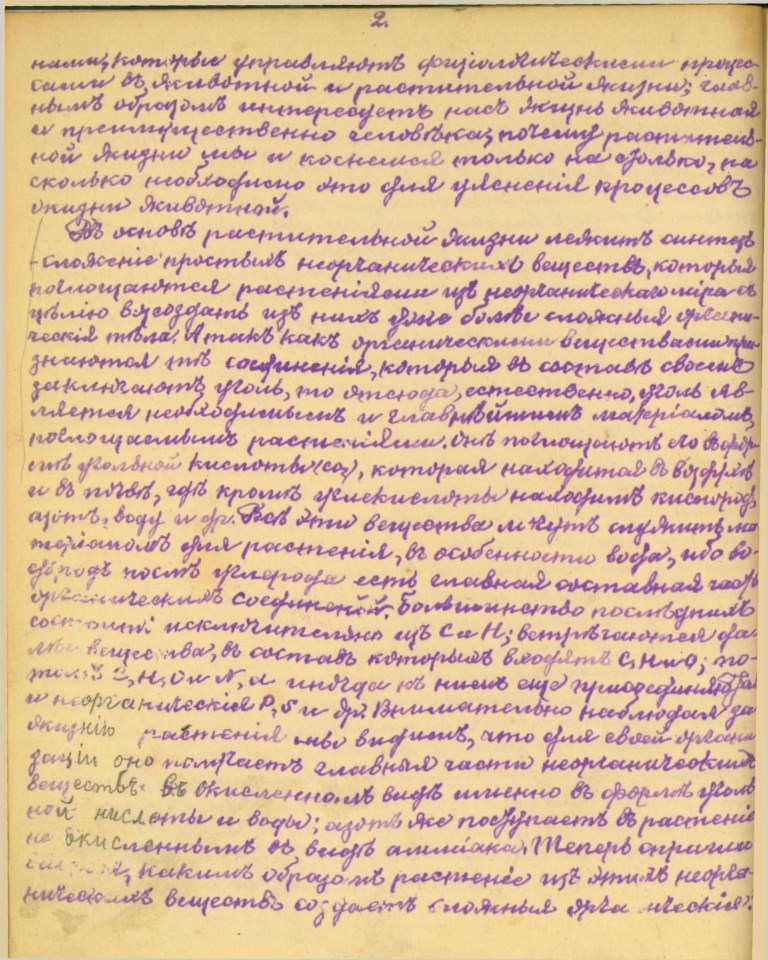 2.
нами, которые управляютъ физіологическими процес-
сами въ животной и растительной жизни; глав-
нымъ образомъ интересуетъ насъ жизнь животная
и преимущественно человѣка; почему раститель-
ной жизни мы и коснемся только на столько, на
сколько необходимо это для уясненія процессовъ
жизни животной.
Въ основѣ растительной жизни лежитъ синтезъ
-сложеніе простыхъ неорганическихъ веществъ, которыя
поглощаются растеніями изъ неорганическаго міра съ
цѣлію возсоздать изъ нихъ уже болѣе сложныя органи-
ческія тѣла. А такъ какъ органическими веществами при-
знаются тѣ соединенія, которыя въ составѣ своемъ
заключаютъ уголь, то отсюда, естественно, уголь яв-
ляется необходимымъ и главнѣйшимъ матеріаломъ,
поглощаемымъ растеніями. Онѣ поглощаютъ его въ фор-
мѣ угольной кислоты (CO₂), которая находится въ воздухѣ
и въ почвѣ, гдѣ кромѣ углекислоты находимъ кислородъ,
азотъ, воду и др. Всѣ эти вещества могутъ служить ма-
теріаломъ для растенія, въ особенности вода, ибо во-
дородъ послѣ углерода есть главная составная часть
органическихъ соединеній. Большинство послѣднихъ
состоитъ исключительно изъ C и H; встрѣчаются да-
лѣе вещества, въ составъ которыхъ входятъ C, H и O; по-
томъ C, H, O и N, а иногда къ нимъ еще присоединяются
и неорганическія P, S и др. Внимательно наблюдая за
жизнію растенія мы видимъ, что для своей органи-
заціи оно получаетъ главныя части неорганическихъ
веществъ въ окисленномъ видѣ именно въ формѣ уголь-
ной кислоты и воды; азотъ же поступаетъ въ растеніе
не окисленнымъ въ видѣ амміака. Теперь спраши-
вается, какимъ образомъ растеніе изъ этихъ неорга-
ническихъ веществъ создаетъ сложныя органическія?